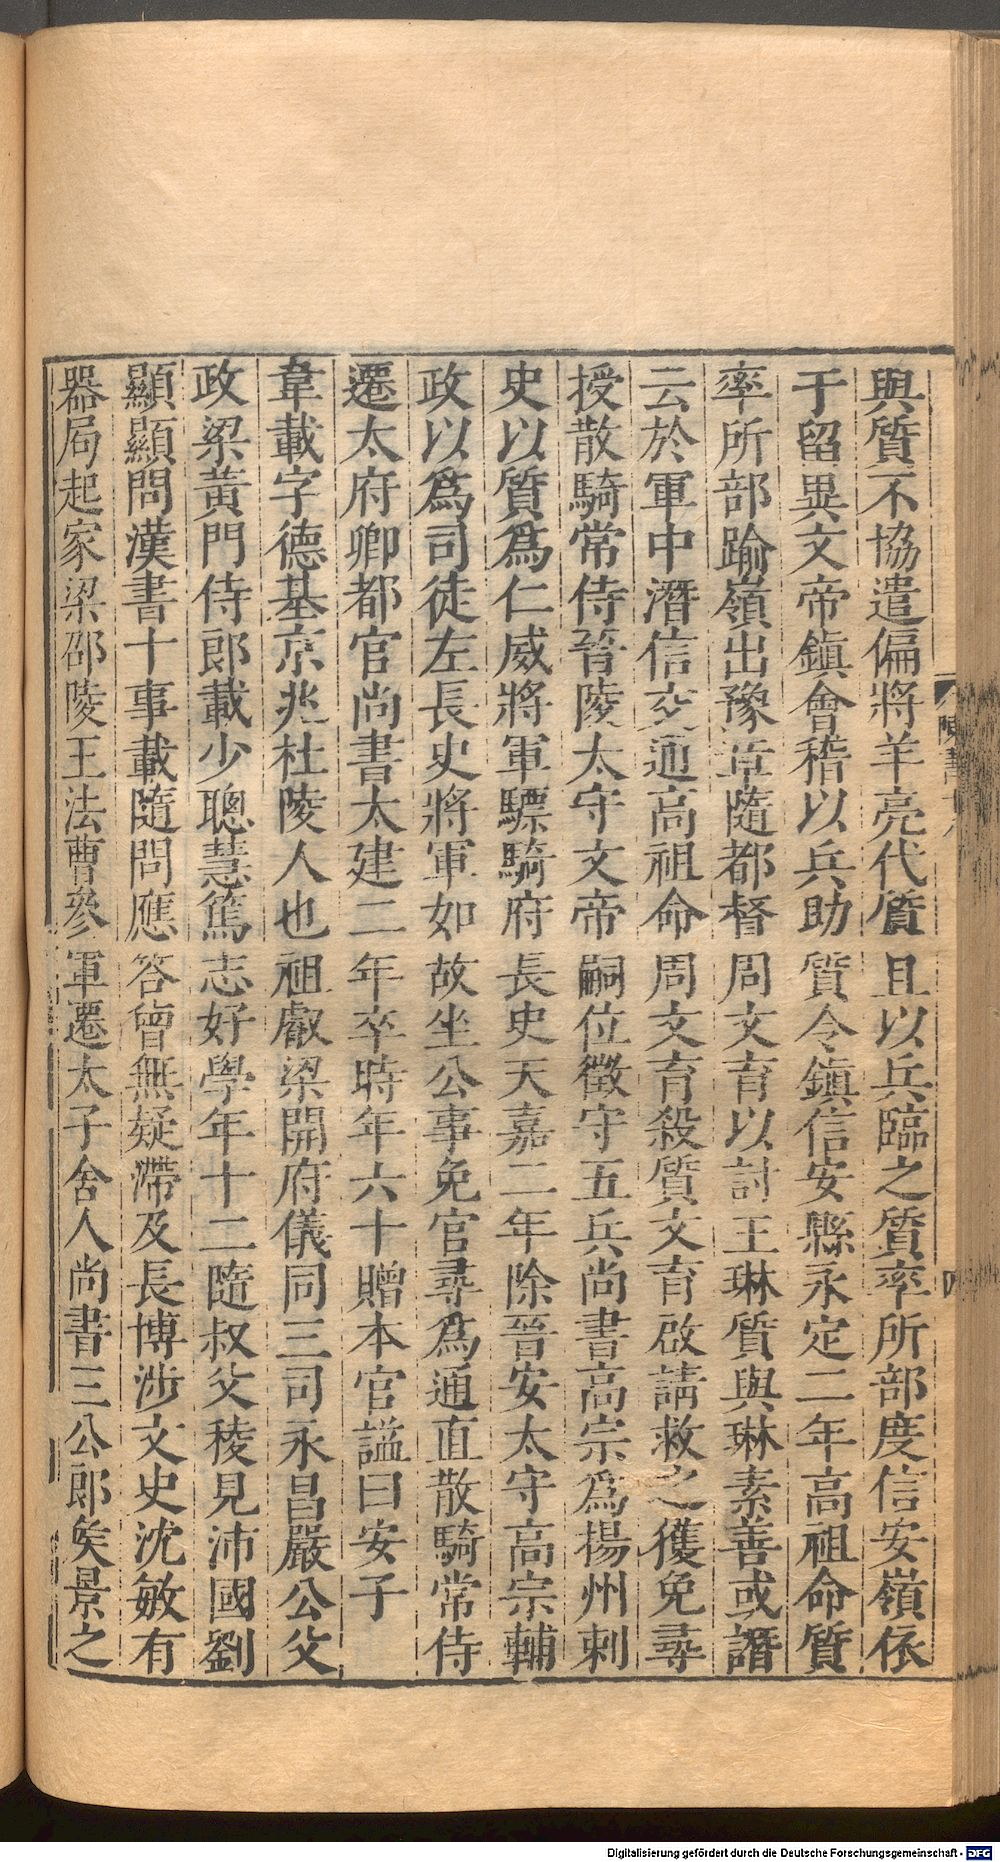 與質不協遣偏將羊亮代質且以兵臨之質率所部度信安嶺依
于留異文帝鎮會稽以兵助質令鎮信安縣永定二年高祖命質
率所部踰嶺出豫章隨都督周文育以討王琳質與琳素善或譖
云於軍中潛信交通高祖命周文育殺質文育啟請救之獲免尋
授散騎常侍晉陵太守文帝嗣位徵守五兵尚書高宗為揚州刺
史以質為仁威將軍驃騎府長史天嘉二年除晉安太守高宗輔
政以為司徒左長史將軍如故坐公事免官尋為通直散騎常侍
遷太府卿都官尚書太建二年卒時年六十贈本官謚曰安子
韋載字德基京兆杜陵人也祖叡梁開府儀同三司永昌嚴公父
政梁黃門侍郎載少聰慧篤志好學年十二隨叔父稜見沛國劉
顯顯問漢書十事載隨問應答曾無疑滯及長博涉文史沈敏有
器局起家梁邵陵王法曹參軍遷太子舍人尚書三公郎矦景之
四
Digitalisierung gefördert durch die Deutsche Forschungsgemeinschaft - DFG